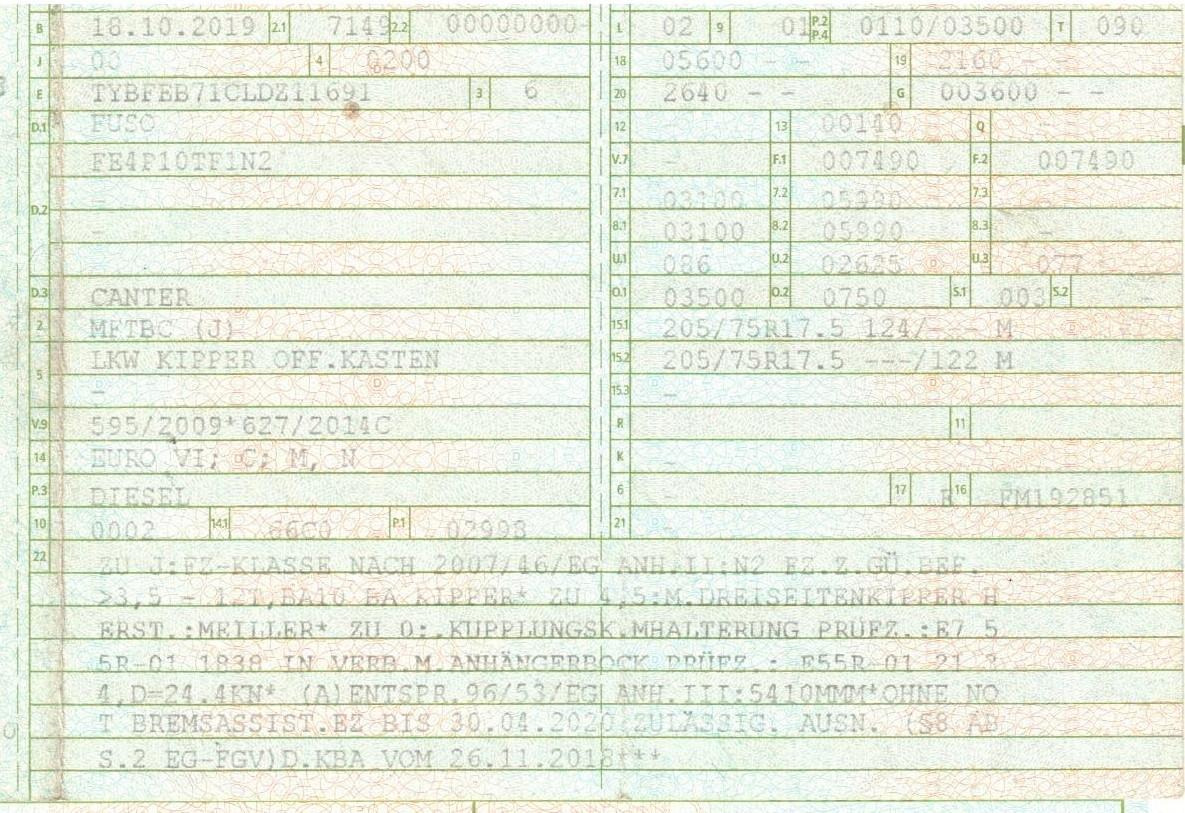 B 18.10.2019 2.1 7149 2.2 00000000- L 02 9 01 P.2 P.4 0110/03500 T 090
J 00 4 0200 18 05600 - - 19 2160 -
E TYBFEB71CLDZ11691 3 6 20 2640 - - G 003600 - -
D.1 FUSO 12 - 13 00140 Q -
FE4P10TF1N2 V.7 - F.1 007490 F.2 007490
D.2 - 7.1 03100 7.2 05990 7.3 -
- 8.1 03100 8.2 05990 8.3 -
U.1 086 U.2 02625 U.3 077
D.3 CANTER O.1 03500 O.2 0750 S.1 003 S.2 -
2. MFTBC (J) 15.1 205/75R17.5 124/--- M
5 LKW KIPPER OFF.KASTEN 15.2 205/75R17.5 ---/122 M
- 15.3 -
V.9 595/2009*627/2014C R 11
14 EURO VI; C; M, N K -
P.3 DIESEL 6 - 17 R 16 FM192851
10 0002 14.1 66C0 P.1 02998 21 -
22 ZU J:FZ-KLASSE NACH 2007/46/EG ANH.II:N2 FZ.Z.GÜ.BEF.
>3,5 - 12T,BA10 BA KIPPER* ZU 4,5:M.DREISEITENKIPPER H
ERST.:MEILLER* ZU O:.KUPPLUNGSK.MHALTERUNG PRÜFZ.:E7 5
5R-01 1838 IN VERB.M.ANHÄNGERBOCK PRÜFZ.: E55R-01 21 3
4,D=24.4KN* (A)ENTSPR.96/53/EG ANH.III:5410MMM*OHNE NO
T BREMSASSIST.EZ BIS 30.04.2020 ZULÄSSIG. AUSN. (§8 AB
S.2 EG-FGV)D.KBA VOM 26.11.2018***